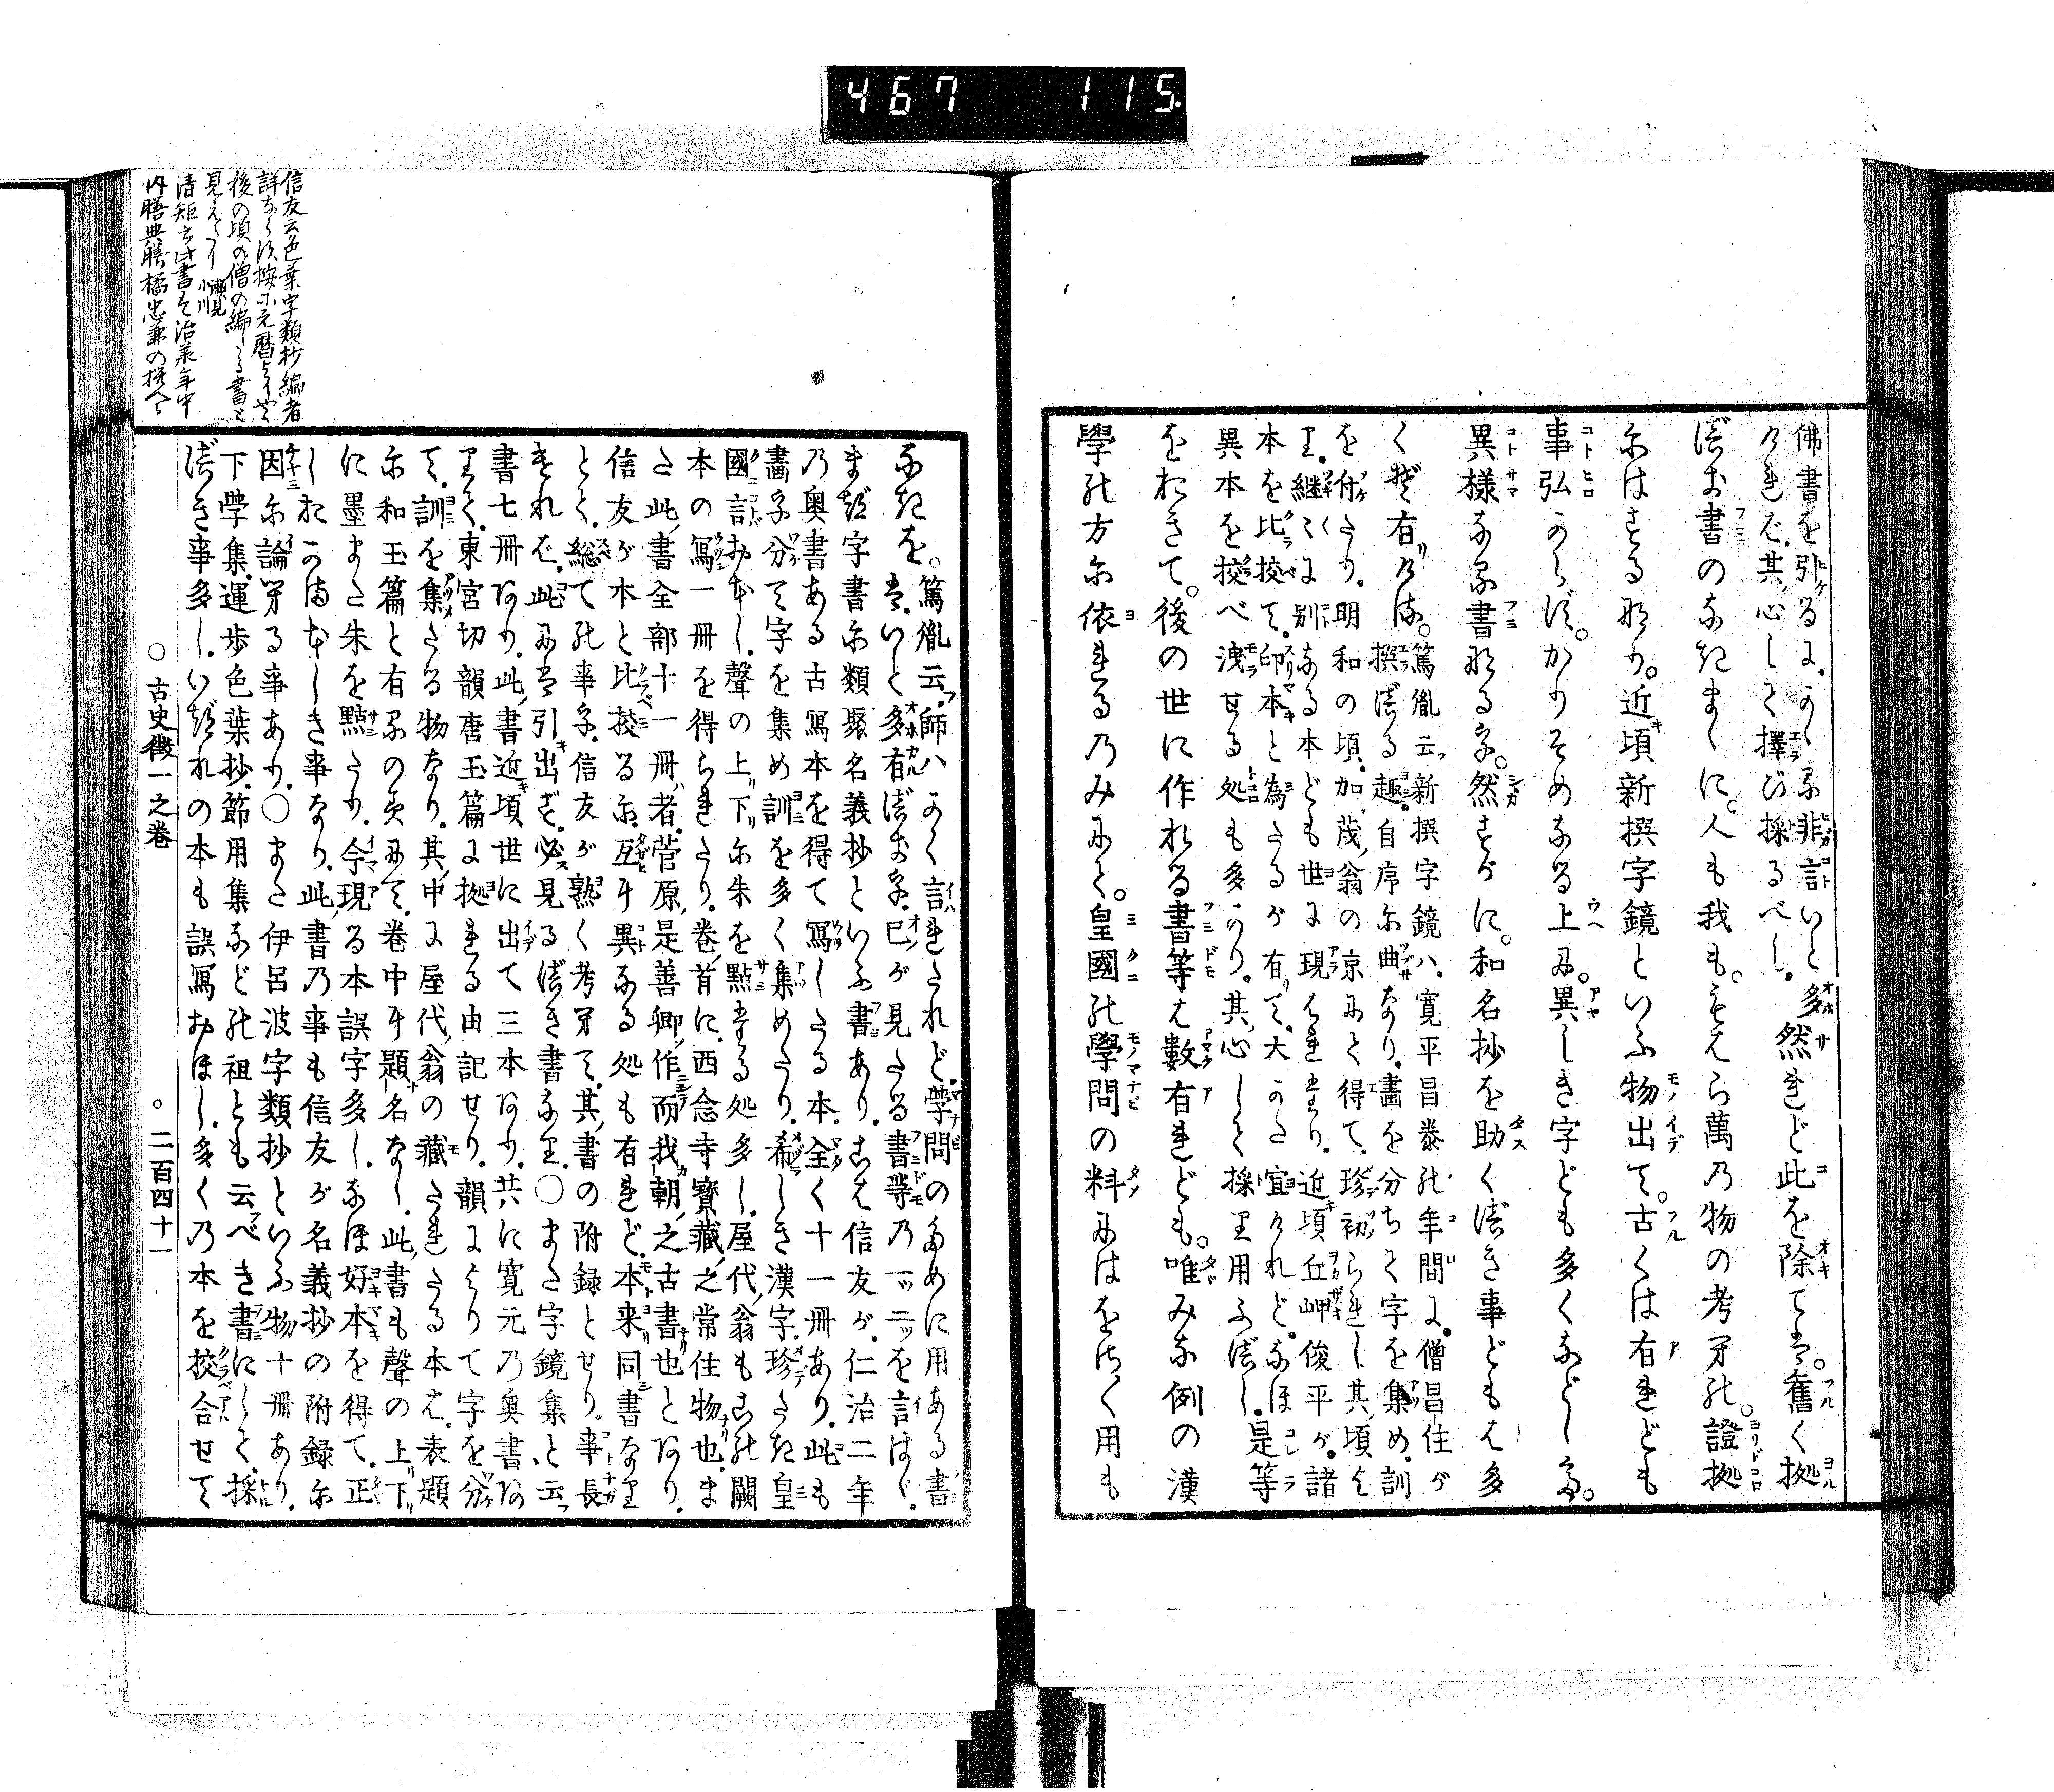 467 115.
佛書を引るに。かゝる非言いと多
ければ。其心して擇び採るべし。然れど此を除ては。舊く據
べき書のなきまゝに。人も我も。もはら萬の物の考への。證據
にはする也。近頃新撰字鏡といふ物出て。古くは有れども
事弘からず。かりそめなる上に。異しき字ども多くなどして。
異様なる書なる。然すがに。和名抄を助くべき事どもは多
くぞ有ける。篤胤云新撰字鏡ハ、寛平昌泰の年間に。僧昌住が
撰べる趣。自序に曲なり。畫を分ちて字を集め。訓
を附たり。明和の頃。加茂翁の京にて得て。珍初られし其頃よ
り。継々に別なる本ども世に現はれたり。近頃丘岬俊平が。諸
本を比挍て。印本と為たるが有て。大かた宜けれど。なほ
異本を挍べ洩せる処も多かり。其心して採り用ふべし。是等
をおきて。後の世に作れる書等は數有れども。唯みな例の漢
學の方に依れるのみにて。皇國の學問の料にはをさ〳〵用も
なきを。篤胤云師ハかく言れたれど。學問のために用ある書
は。いと多有べき。己が見たる書等の一ッ二ッを言はゞ。
まづ字書に類聚名義抄といふ書あり。こは信友が。仁治二年
の奥書ある古冩本を得て冩したる本。全く十一冊あり。此も
畫を分て字を集め訓を多く集めたり。希しき漢字。珍たき皇
國言おほし。聲の上下に朱を點たる処多し。屋代翁もこの闕
本の冩一冊を得られたり。巻首に。西念寺寳藏之常住物也。ま
た此書全部十一冊者。菅原是善卿作而我朝之古書也とあり。
信友が本と比挍るに。互に異なる処も有れど。本来同書なり
とて。総ての事を。信友が熟く考へて。其書の附録とせり。事長
ければ。此には引出ず。必見るべき書なり。○また字鏡集と云
書七冊あり。此書近頃世に出て三本あり。共に寛元の奥書あ
りて。東宮切韻唐玉篇に據れる由記せり。韻によりて字を分
て。訓を集たる物なり。其中に屋代翁の藏たれたる本は。表題
に和玉篇と有るのみにて。巻中に題名なし。此書も聲の上下
に墨また朱を點たり。今現る本誤字多し。なほ好本を得て。正
しおかまほしき事なり。此書の事も信友が名義抄の附録に
因に論へる事あり。○また伊呂波字類抄といふ物十冊あり。
下學集。運歩色葉抄。節用集などの祖とも云べき書にして。採
べき事多し。いづれの本も誤冩おほし。多くの本を挍合せて
○ 古史徴一之巻 ○ 二百四十一
信友云色葉字類抄編者
詳ならず按に元暦よりやゝ
後の頃の僧の編しる書と
見えたり
瀬見
小川
清矩云此書は治承年中
内膳典膳橘忠兼の撰へる